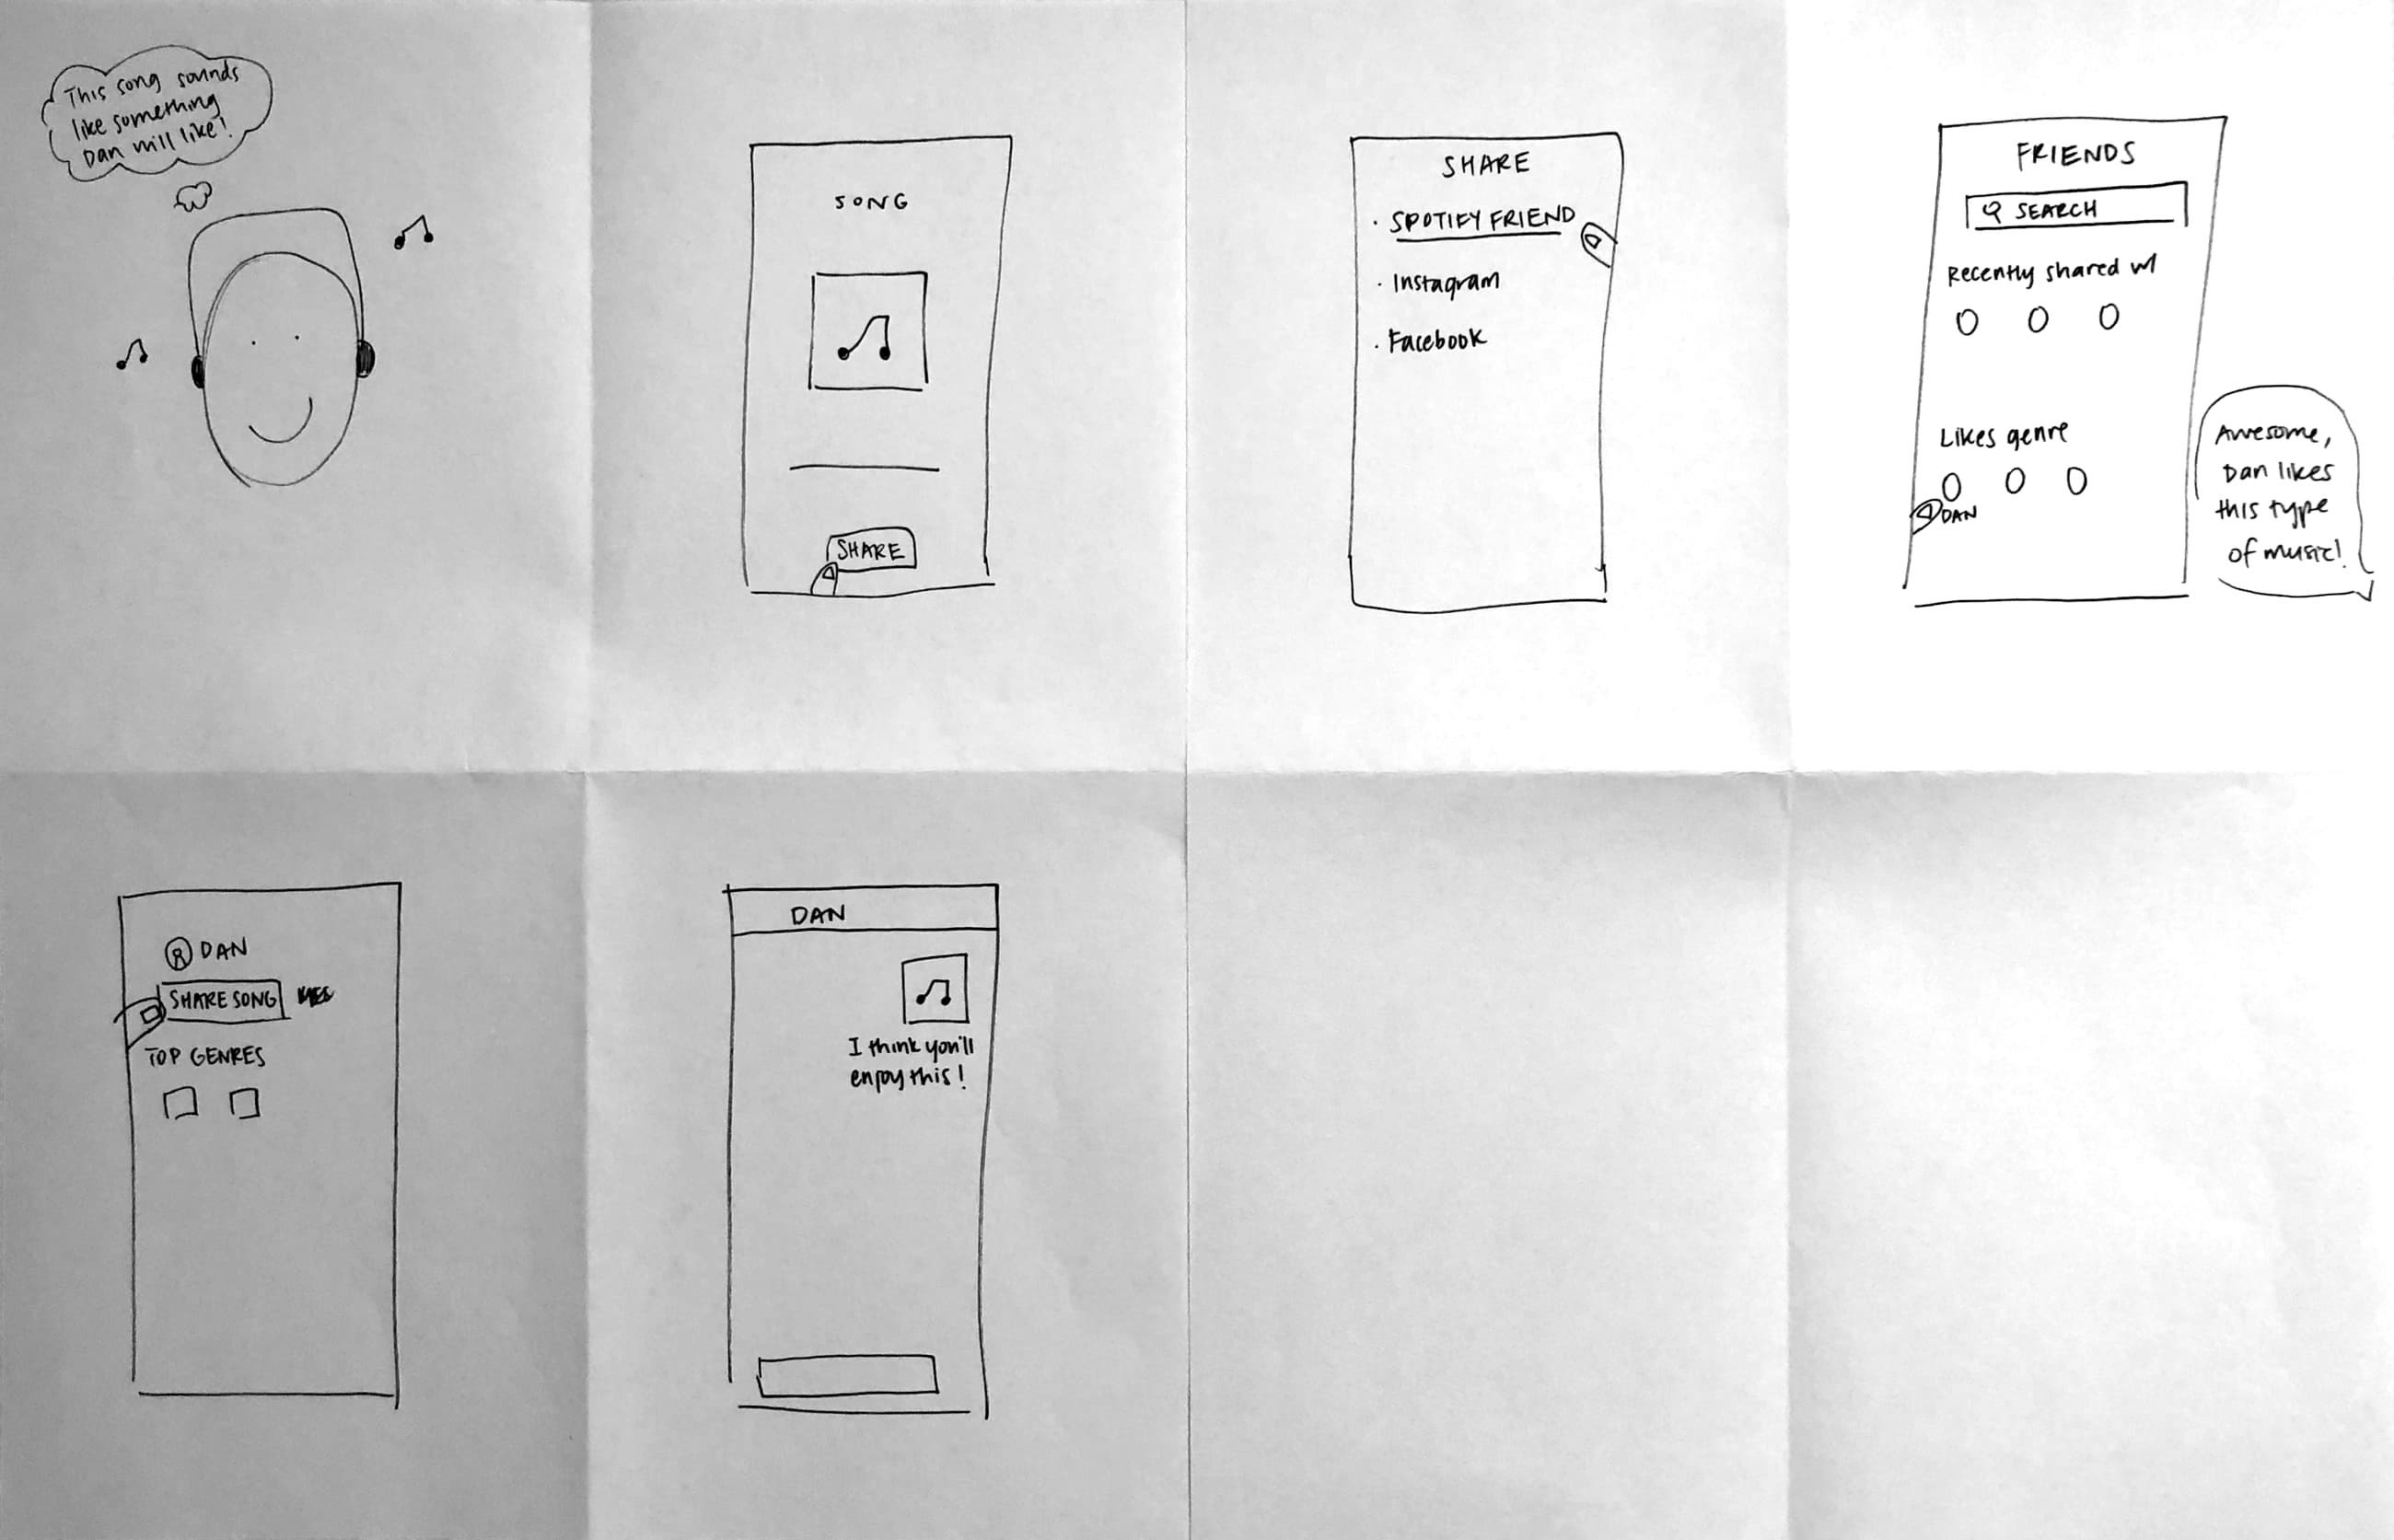 This song sounds
like something
Dan will like!
SONG
SHARE
SHARE
· SPOTIFY FRIEND
· Instagram
· Facebook
FRIENDS
SEARCH
Recently shared w/
Likes genre
DAN
Awesome,
Dan likes
this type
of music!
DAN
SHARE SONG
TOP GENRES
DAN
I think you'll
enjoy this!